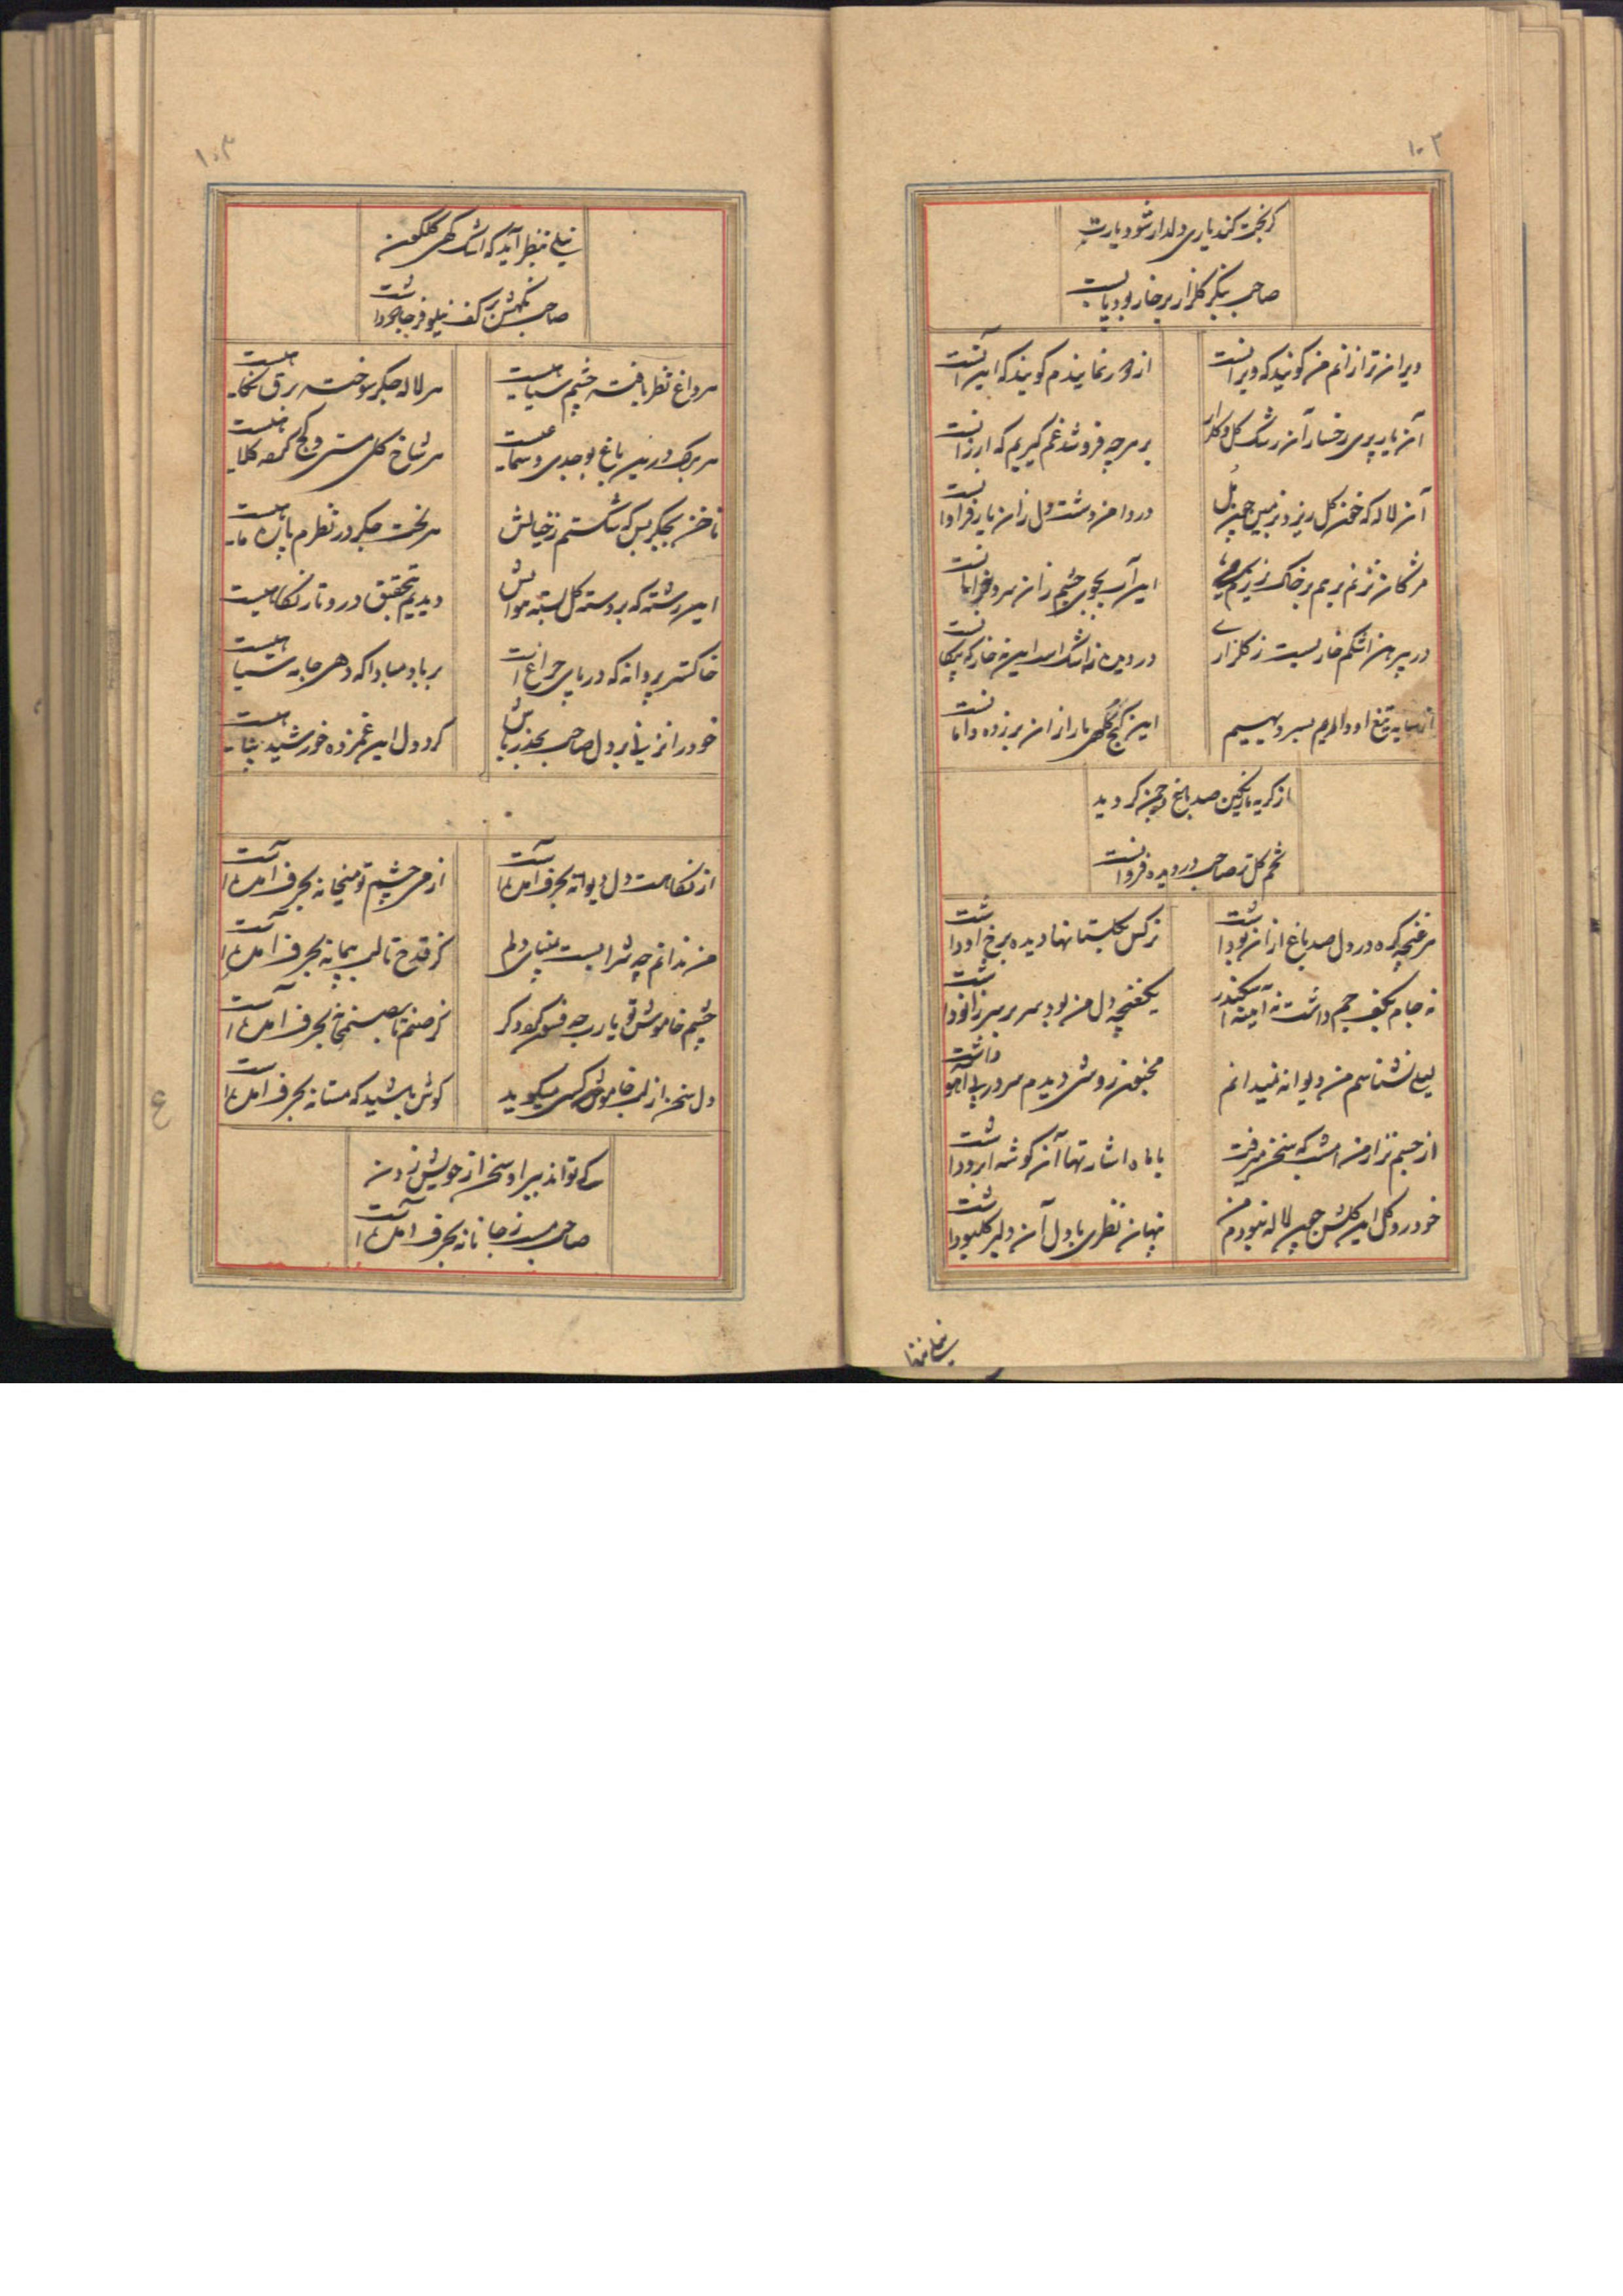 ۱۰۲
کر بخت کند یاری دلدار شود یارت
صاحب بنکر کلزار بر خار بود پابست
ویران تر ازانم من کویند که ویرانست
از دور نمایندم کویند که این آنست
آن یار پری رخسار آن رشک کل و کلزار
بر هرچه فروشد غم کیریم که ارزانست
آن لاله که خون کل ریزد بزمین
در دامن دشت دل زان یار فراوانست
مژکان نزنم برهم بر خاک نریزم
این آب بجوی چشم زان سرو خرامانست
در پیرهن اشکم خاریست ز کلزاری
در دیده نه اشک است این خار که پیکانست
تیغ او داریم بسر
این کنج کهر بار از ان بر زده دامانست
از کریه رنکین صد باغ و چمن کردید
تخم کل تر صاحب در دیده فروانست
هر غنچه کره در دل صد باغ ازان بو داشت
نرکس بکلستانها دیده برخ او داشت
نه جام بکف جم داشت نه آینه اسکندر
یکغنچه دل من بود سر بر سر زانو داشت
لیلی نشناسم من دیوانه نمیدانم
مجنون روشی دیدم سر در پی آهو داشت
از جسم نزار من امشب که سخن میرفت
با ماه اشارتها آن کوشه ابرو داشت
خودرو کل این کلشن چون لاله نبودم من
پنهان نظری با دل آن دلبر کلبو داشت
نیلی بنظر
۱۰۳
نیلی بنظر آید که اشک کهی کلکون
صاحب نکهش بر کف نیلوفر جادو داشت
هر داغ نظر یافته چشم سیاهیست
هر لاله جکر سوخته برق نکاهیست
هر برک درین باغ بوجدی و سماعیست
هر شاخ کلی مست و کج کرده کلاهیست
ناخن بجکر بس که شکستم ز خیالش
هر لخت جکر در نظرم پاره ماهیست
این رشته که بر دسته کل بسته مو باش
دیدیم بتحقیق درو تار نکاهیست
خاکستر پروانه که در پای چراغ است
بر باد مبادا که دهی جای سیاهیست
خود را نزنی بر دل صاحب بحذر باش
کرد دل این غمزده خورشید پناهیست
از نکاهت دل دیوانه بحرف آمده است
از می چشم تو میخانه بحرف آمده است
من ندانم چه شرابیست بمینای دلم
کز قدح تا لب پیمانه بحرف آمده است
چشم خاموش تو یارب چه فسون کرد دکر
کز صنم تا بصنمخانه بحرف آمده است
دل سخن از لب خاموش کسی میکوید
کوش باشید که مستانه بحرف آمده است
که تواند ببر او سخن از خویش زدن
صاحب مست ز جانانه بحرف آمده است